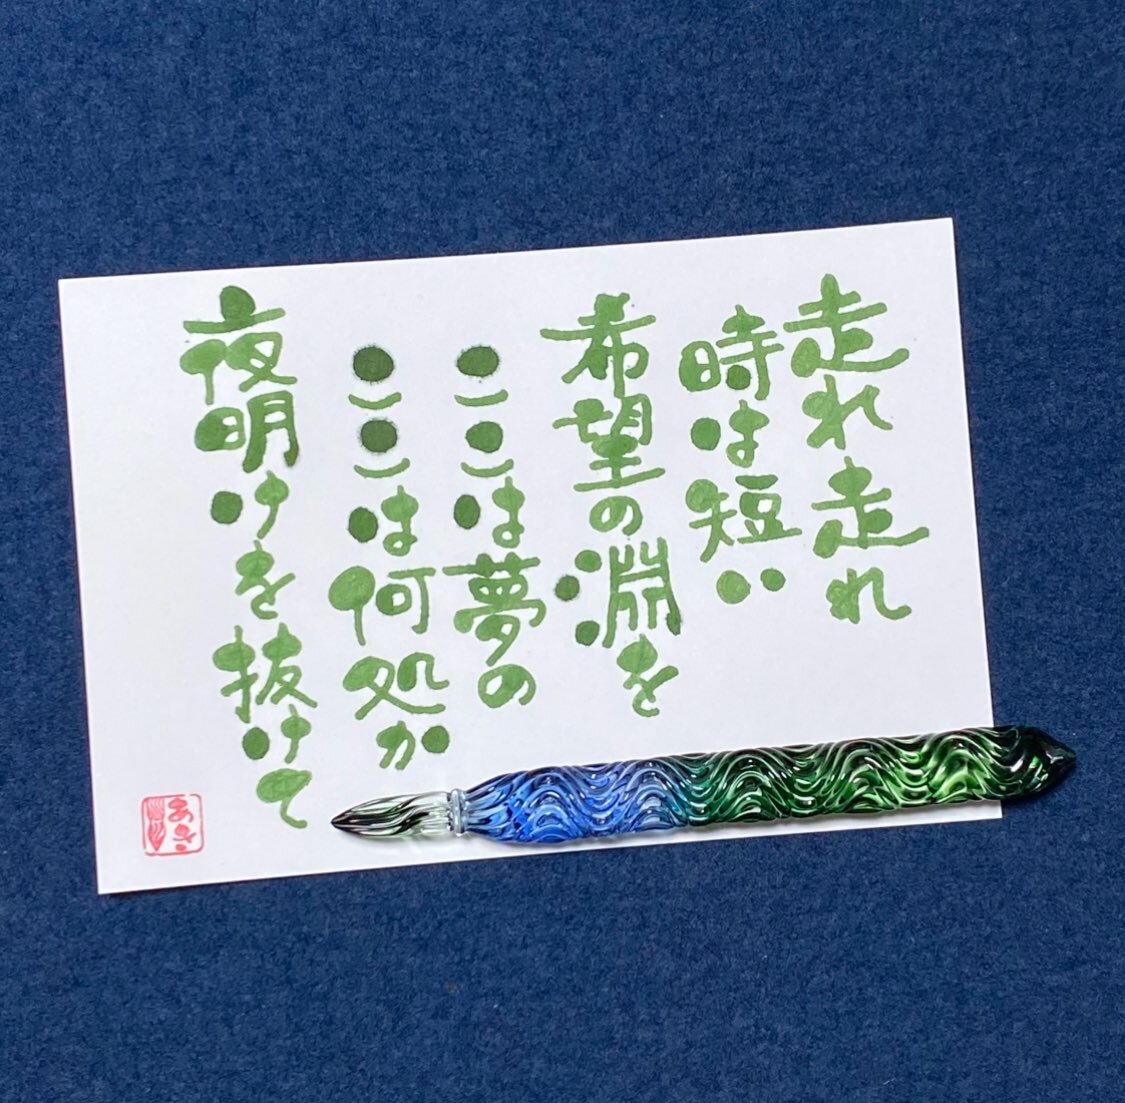 走れ走れ
時は短い
希望の淵を
ここは夢の
ここは何処か
夜明けを抜けて
あき